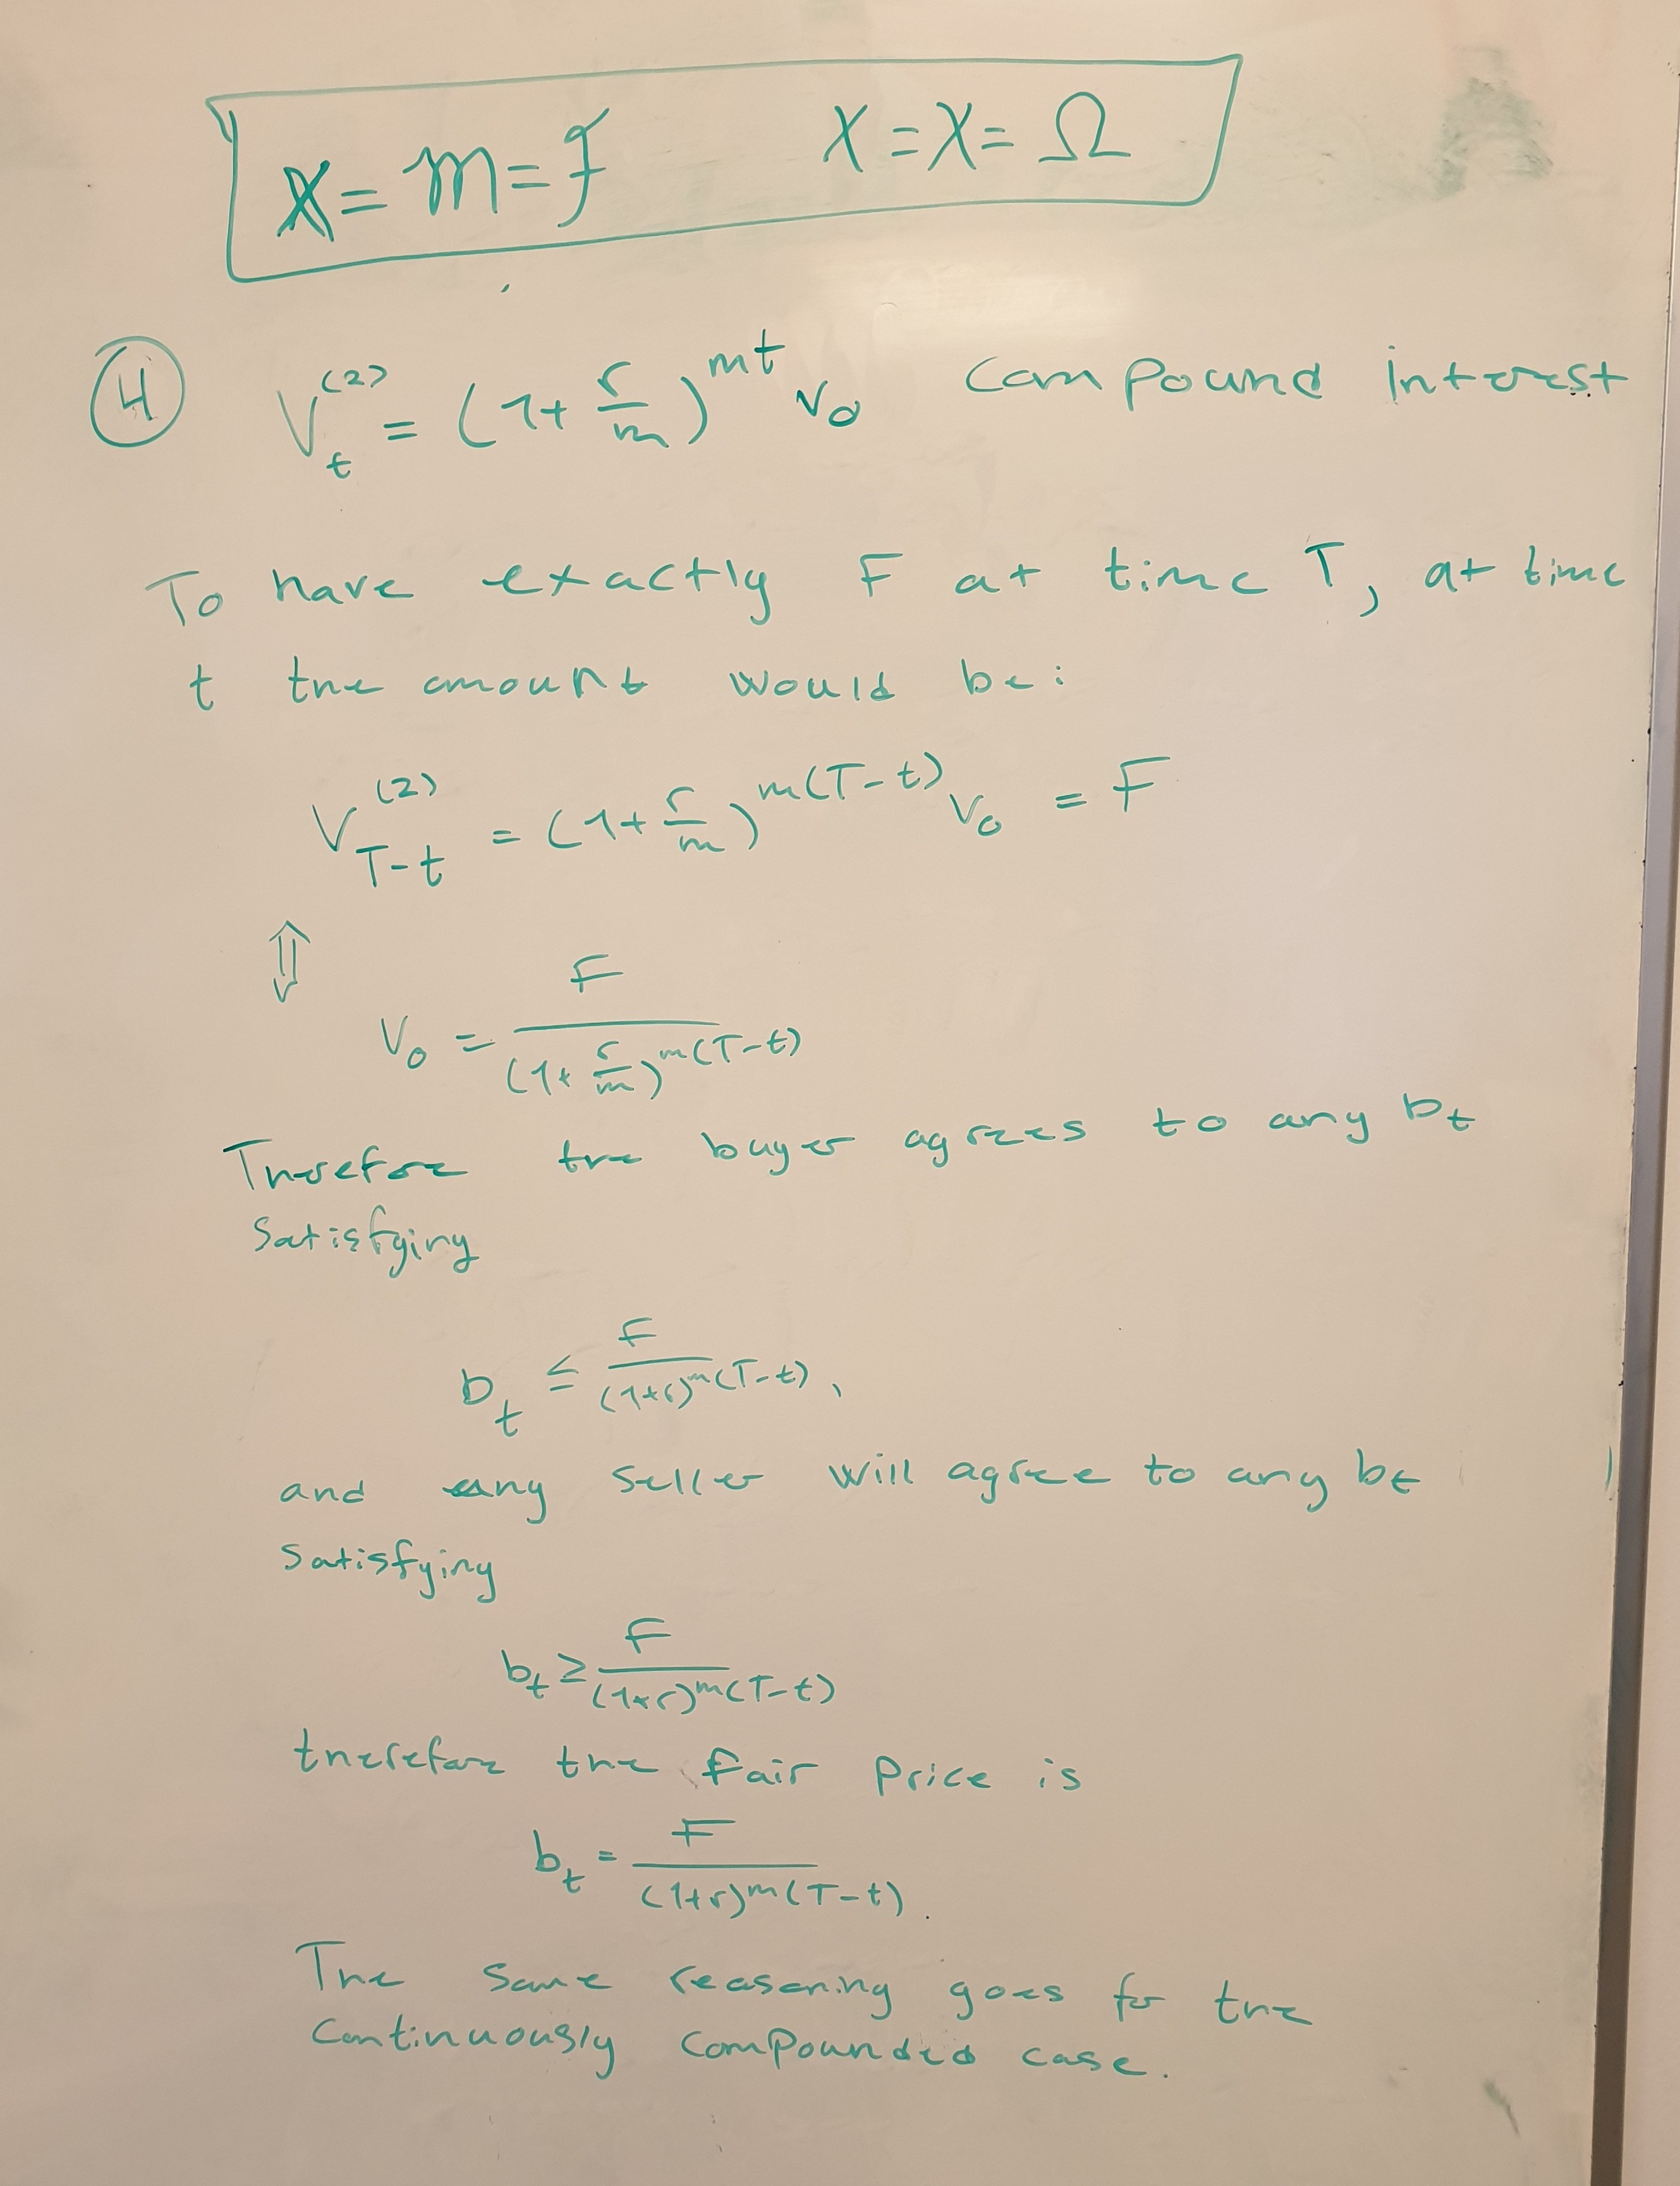 X = m = F X = X = Ω
④ V_t^(2) = (1 + r/m)^mt V_0 compound interest
To have exactly F at time T, at time
t the amount would be:
V_{T-t}^(2) = (1 + r/m)^m(T-t) V_0 = F
⇕
V_0 = F / (1 + r/m)^m(T-t)
Therefore the buyer agrees to any b_t
satisfying
b_t ≤ F / (1+r)^m(T-t),
and any seller will agree to any b_t
satisfying
b_t ≥ F / (1+r)^m(T-t)
therefore the fair price is
b_t = F / (1+r)^m(T-t).
The same reasoning goes for the
continuously compounded case.